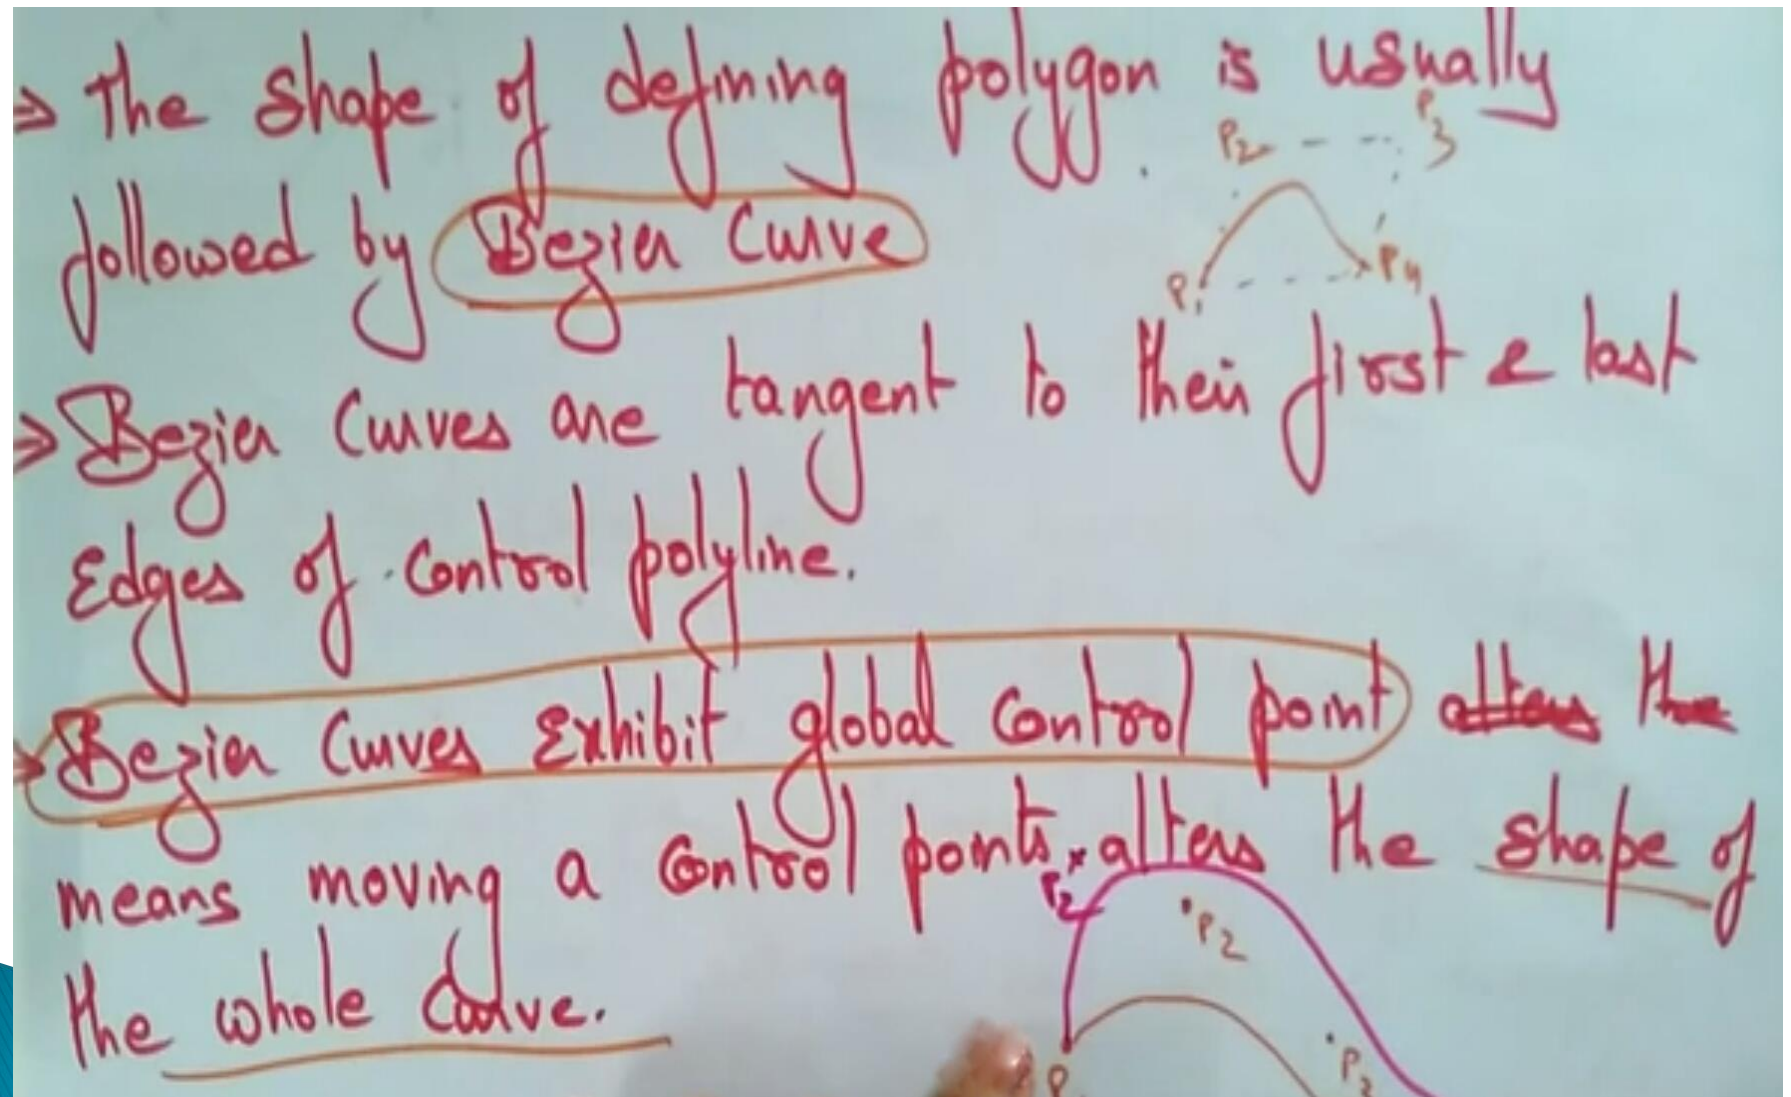 ⇒ The shape of defining polygon is usually
P2 P3
followed by Bezier Curve
P1 P4
⇒ Bezier Curves are tangent to their first & last
Edges of control polyline.
⇒ Bezier Curves Exhibit global control point alters the
means moving a control points alters the shape of
P2 P2
the whole curve.
P P3